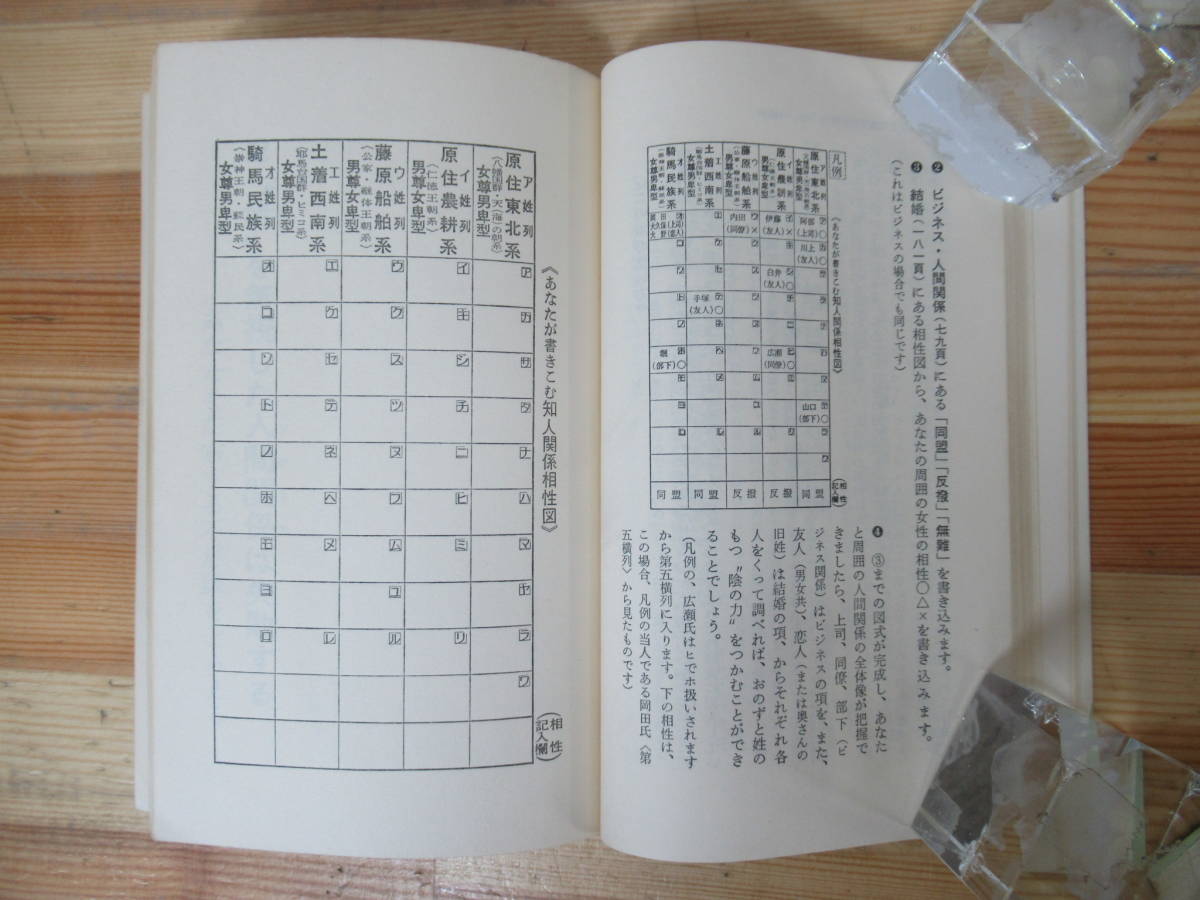 ❷ ビジネス・人間関係(七九頁)にある「同盟」「反撥」「無難」を書き込みます。
❸ 結婚(一八一頁)にある相性図から、あなたの周囲の女性の相性○△×を書き込みます。
(これはビジネスの場合でも同じです)
凡例
《あなたが書きこむ知人関係相性図》
ア姓列
原住東北系
女尊男卑型
ア 阿部(上司)○
カ 川上(友人)○
サ
タ
ナ
ハ
マ
ヤ 山口(部下)○
ラ
ワ
(相性記入欄)
同盟
イ姓列
原住農耕系
(仁徳王朝系)
男尊女卑型
イ 伊藤(友人)×
キ
シ 白井(友人)○
チ
ニ
ヒ 広瀬(同僚)○
ミ
リ
反撥
ウ姓列
藤原船舶系
男尊女卑型
ウ 内田(同僚)×
ク
ス
ツ
ヌ
フ
ム
ユ
ル
反撥
エ姓列
土着西南系
女尊男卑型
エ
ケ
セ
テ 手塚(友人)○
ネ
ヘ
メ
レ
同盟
オ姓列
騎馬民族系
女尊男卑型
オ
コ
ソ
ト
ノ
ホ 堀(部下)○
モ
ヨ
ロ
同盟
❹ ③までの図式が完成し、あなた
と周囲の人間関係の全体像が把握で
きましたら、上司、同僚、部下(ビ
ジネス関係)はビジネスの項を、また、
友人(男女共)、恋人(または奥さんの
旧姓)は結婚の項、からそれぞれ各
人をくって調べれば、おのずと姓の
もつ〝陰の力〟をつかむことができ
ることでしょう。
(凡例の、広瀬氏はヒでホ扱いされます
から第五横列に入ります。下の相性は、
この場合、凡例の当人である岡田氏〈第
五横列〉から見たものです)
《あなたが書きこむ知人関係相性図》
ア姓列
原住東北系
女尊男卑型
ア
カ
サ
タ
ナ
ハ
マ
ヤ
ラ
ワ
(相性記入欄)
イ姓列
原住農耕系
(仁徳王朝系)
男尊女卑型
イ
キ
シ
チ
ニ
ヒ
ミ
リ
ウ姓列
藤原船舶系
(公家・継体王朝系)
男尊女卑型
ウ
ク
ス
ツ
ヌ
フ
ム
ユ
ル
エ姓列
土着西南系
(邪馬台国群・ヒミコ系)
女尊男卑型
エ
ケ
セ
テ
ネ
ヘ
メ
レ
オ姓列
騎馬民族系
(崇神王朝・韓民系)
女尊男卑型
オ
コ
ソ
ト
ノ
ホ
モ
ヨ
ロ